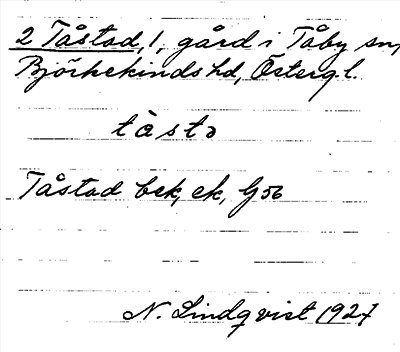 2 Tåstad, 1, gård i Tåby sn,
Björkekinds hd, Östergl.
tå̀stə
Tåstad bek, ek, G 56
N. Lindqvist 1927